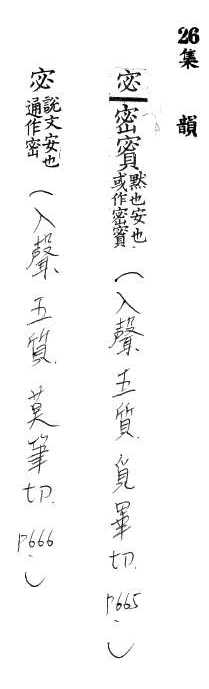 26集韻
宓密𡪍默也安也或作密𡪍（入聲五質覓畢切p665.）
宓說文安也通作密（入聲五質莫筆切p666.）